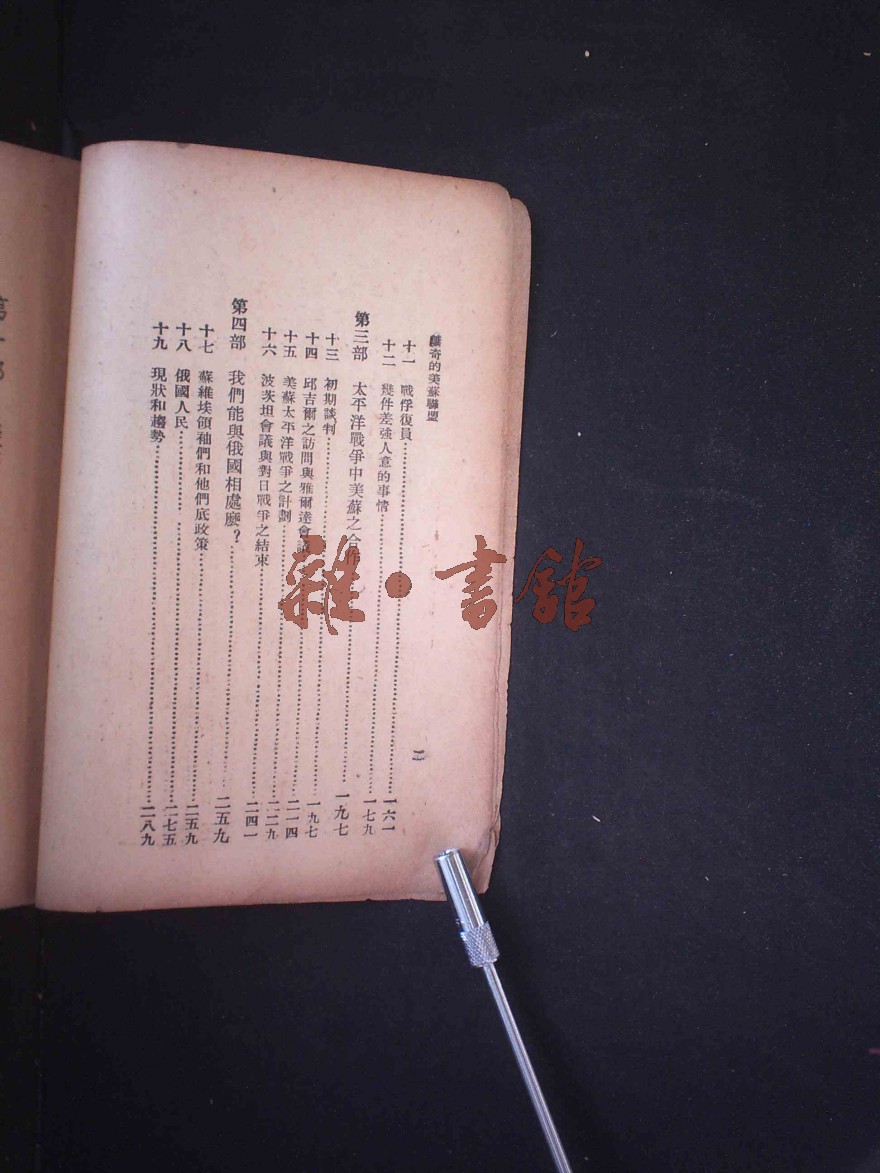 離奇的美蘇聯盟
二
十一 戰俘復員 一六一
十二 幾件差強人意的事情 一七九
第三部 太平洋戰爭中美蘇之合作 一九七
十三 初期談判 一九七
十四 邱吉爾之訪問與雅爾達會議
十五 美蘇太平洋戰爭之計劃 二一四
十六 波茨坦會議與對日戰爭之結束 二四一
第四部 我們能與俄國相處麼？ 二五九
十七 蘇維埃領袖們和他們底政策 二五九
十八 俄國人民 二七五
十九 現狀和趨勢 二八九
雜·書館